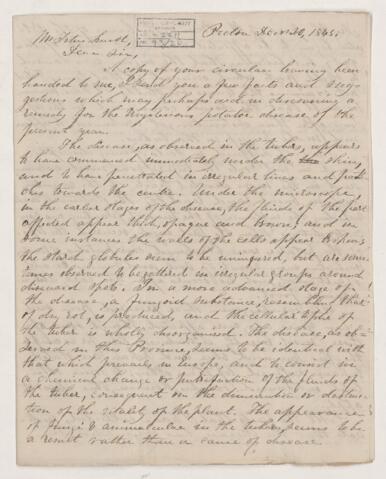 Pictou Novr 20, 1845.
Mr John Smith,
Dear Sir,
A copy of your circular having been
handed to me, I send you a few facts and sug-
gestions which may perhaps aid in discovering a
remedy for the mysterious potatoe disease of the
present year.
The disease, as observed in the tuber, appears
to have commenced immediately under the skin,
and to have penetrated in irregular lines and pat-
ches towards the centre. Under the microscope
in the earlier stages of the disease, the fluids of the part
affected appear thick, opaque and brown, and in
some instances the walls of the cells appear broken;
the starch globules seem to be uninjured, but are some-
times observed to be gathered in irregular groups around
diseased spots. In a more advanced stage of
the disease, a fungoid substance, resembling that
of dry rot, is produced, and the cellular tissue of
the tuber is wholly disorganised. The disease, as ob-
served in this Province, seems to be identical with
that which prevails in Europe, and to consist in
a chemical change or putrefaction of the fluids of
the tuber, consequent on the diminution or destruc-
tion of the vitality of the plant. The appearance
of fungi & animalculae in the tubers, seems to be
a result rather than a cause of disease.